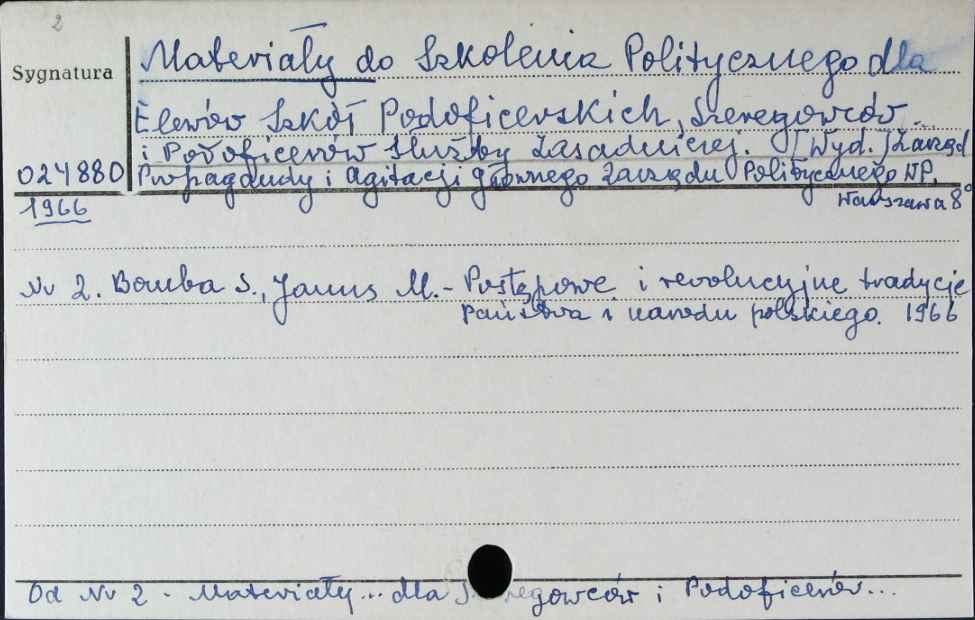 2
Materiały do Szkolenia Politycznego dla
Sygnatura
Elewów Szkół Podoficerskich, Szeregowców
i Podoficerów Służby Zasadniczej. [Wyd.] Zarząd
024880 Propagandy i Agitacji Głównego Zarządu Politycznego WP.
1966 Warszawa 8°
Nr 2. Bomba S., Janus M. - Postępowe i rewolucyjne tradycje
państwa i narodu polskiego. 1966
Od Nr 2 - Materiały... dla Szeregowców i Podoficerów...